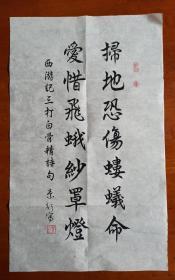 掃地恐傷螻蟻命
愛惜飛蛾紗罩燈
西游記三打白骨精掾句